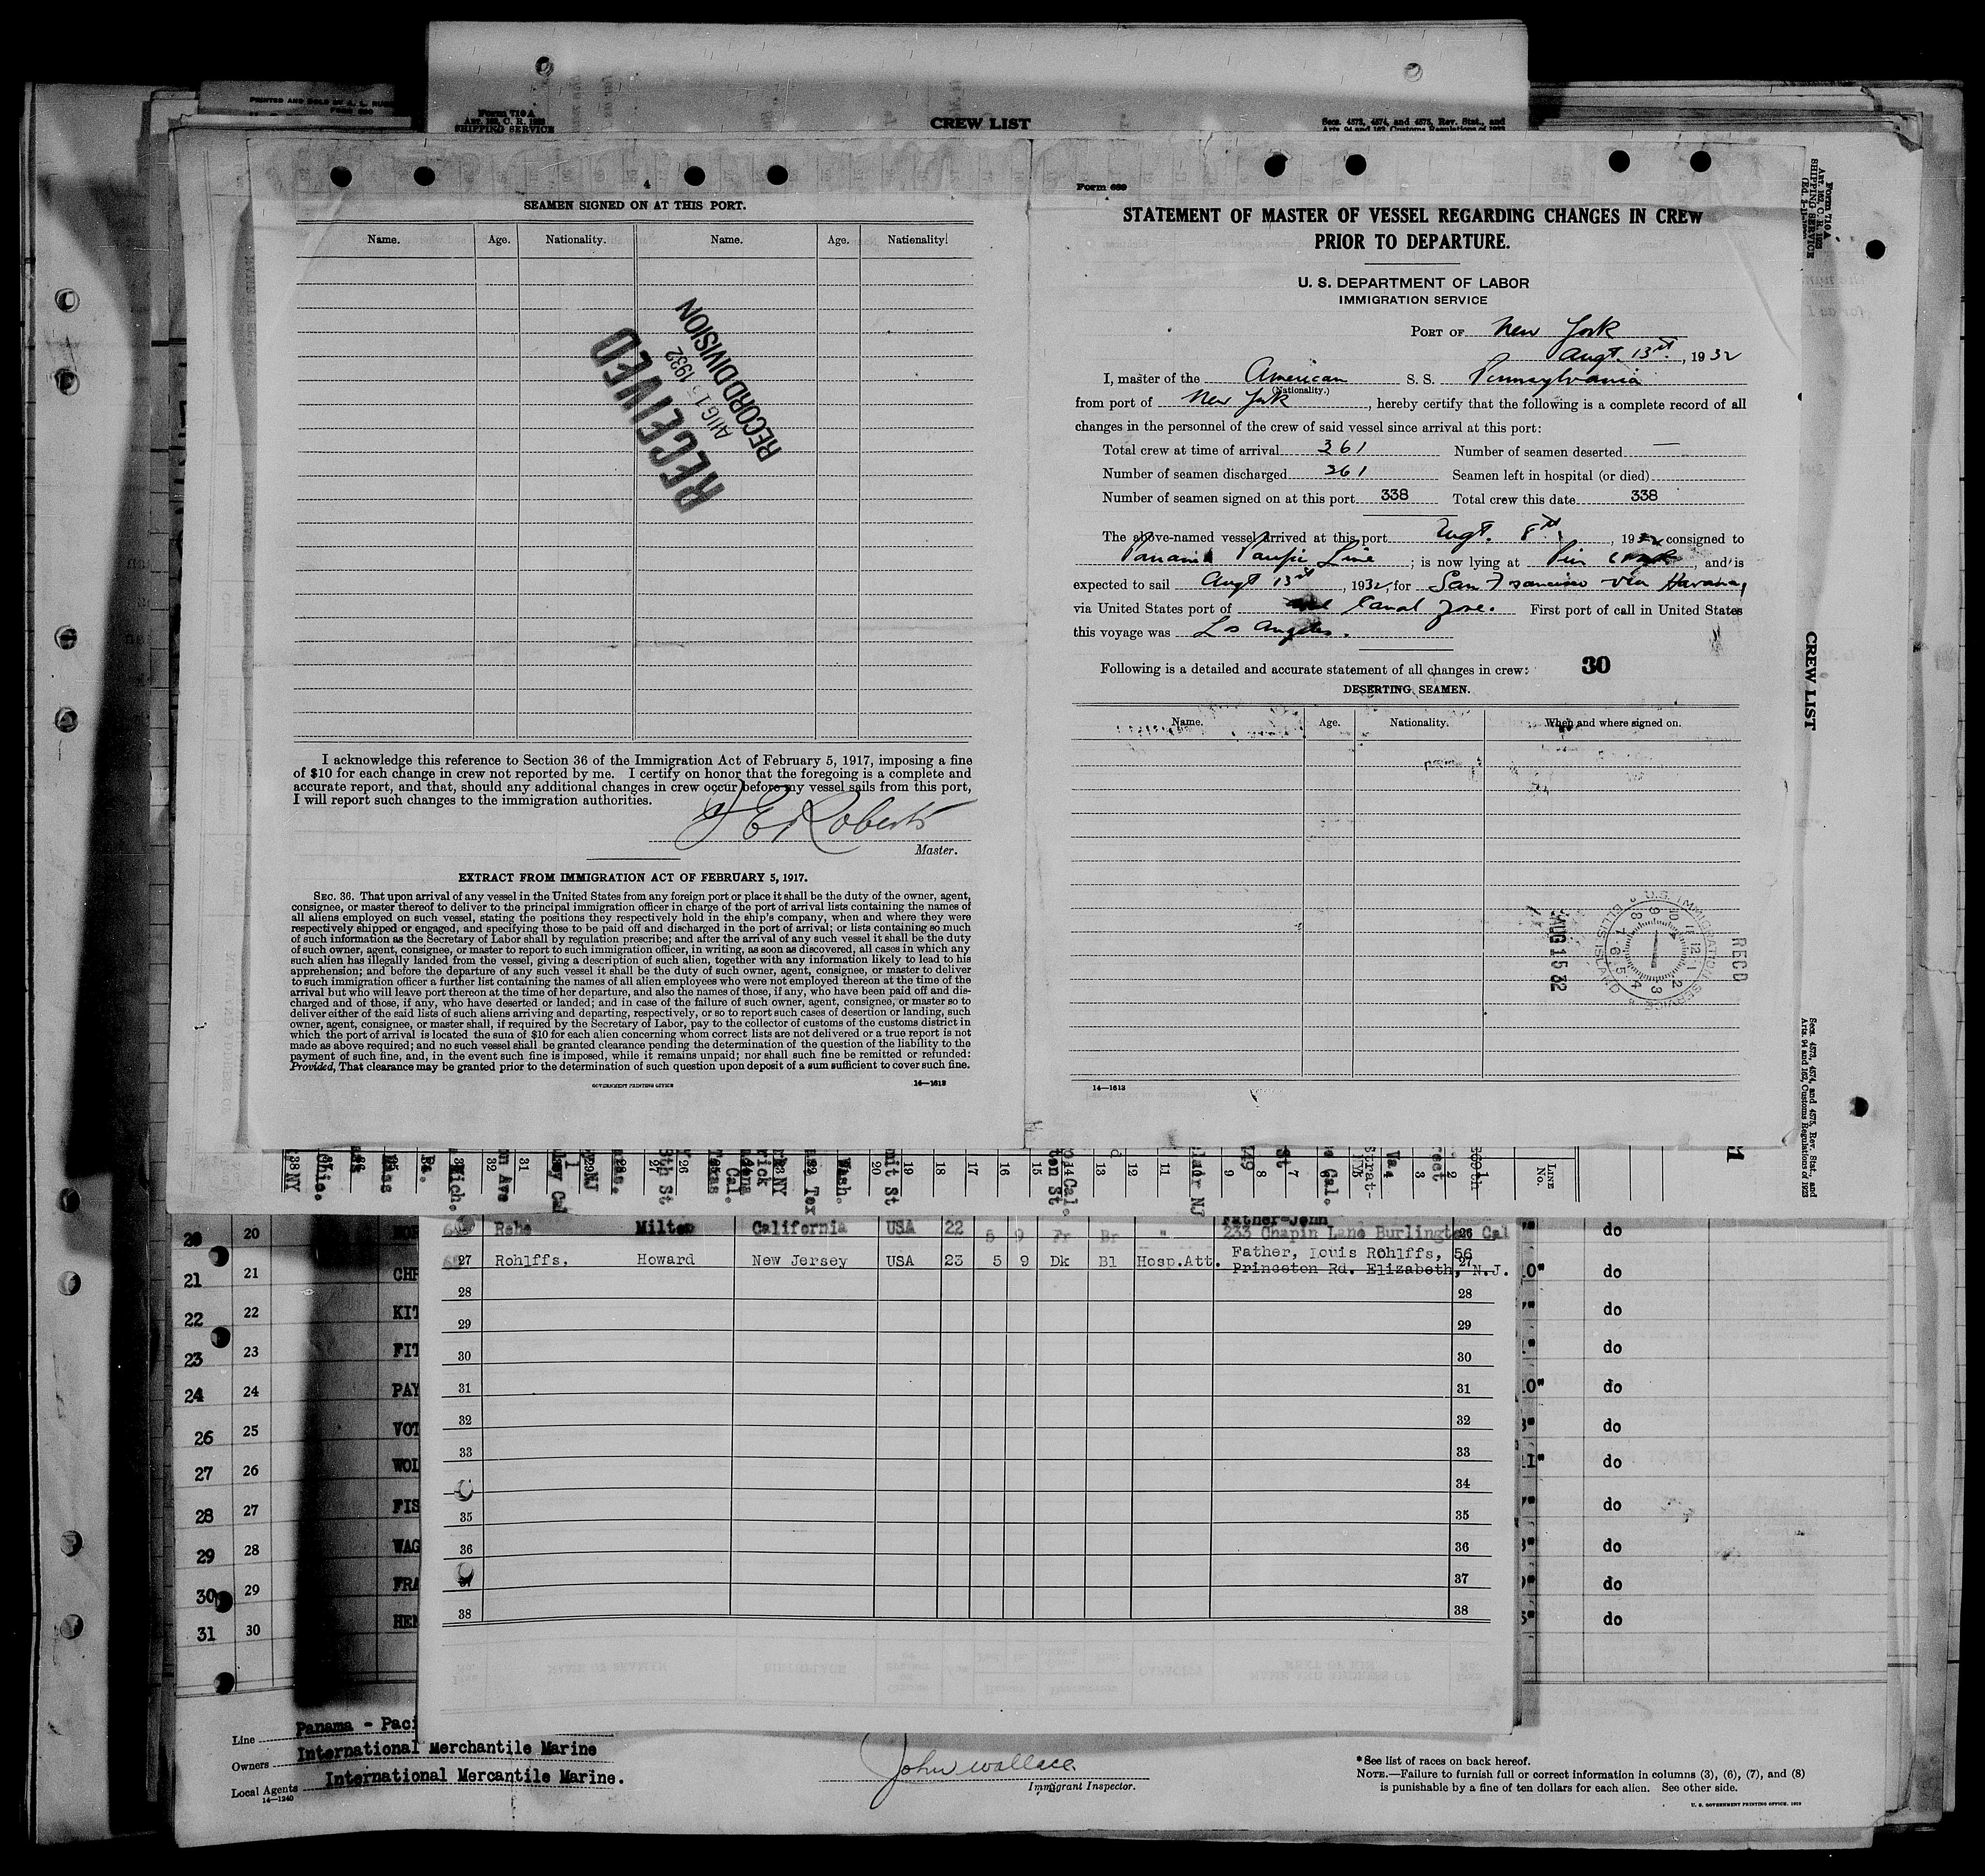 PRINTED AND SOLD BY
Form 710A
Art. 162, C. R. 1923
SHIPPING SERVICE
CREW LIST
Secs. 4573, 4574, and 4575, Rev. Stat., and
Arts. 94 and 162, Customs Regulations of 1923
4
SEAMEN SIGNED ON AT THIS PORT.
Name. Age. Nationality. Name. Age. Nationality.
RECEIVED
AUG 15 1932
RECORD DIVISION
I acknowledge this reference to Section 36 of the Immigration Act of February 5, 1917, imposing a fine
of $10 for each change in crew not reported by me. I certify on honor that the foregoing is a complete and
accurate report, and that, should any additional changes in crew occur before my vessel sails from this port,
I will report such changes to the immigration authorities.
Roberts
Master.
EXTRACT FROM IMMIGRATION ACT OF FEBRUARY 5, 1917.
SEC. 36. That upon arrival of any vessel in the United States from any foreign port or place it shall be the duty of the owner, agent,
consignee, or master thereof to deliver to the principal immigration officer in charge of the port of arrival lists containing the names of
all aliens employed on such vessel, stating the positions they respectively hold in the ship's company, when and where they were
respectively shipped or engaged, and specifying those to be paid off and discharged in the port of arrival; or lists containing so much
of such information as the Secretary of Labor shall by regulation prescribe; and after the arrival of any such vessel it shall be the duty
of such owner, agent, consignee, or master to report to such immigration officer, in writing, as soon as discovered, all cases in which any
such alien has illegally landed from the vessel, giving a description of such alien, together with any information likely to lead to his
apprehension; and before the departure of any such vessel it shall be the duty of such owner, agent, consignee, or master to deliver
to such immigration officer a further list containing the names of all alien employees who were not employed thereon at the time of the
arrival but who will leave port thereon at the time of her departure, and also the names of those, if any, who have been paid off and dis-
charged and of those, if any, who have deserted or landed; and in case of the failure of such owner, agent, consignee, or master so to
deliver either of the said lists of such aliens arriving and departing, respectively, or so to report such cases of desertion or landing, such
owner, agent, consignee, or master shall, if required by the Secretary of Labor, pay to the collector of customs of the customs district in
which the port of arrival is located the sum of $10 for each alien concerning whom correct lists are not delivered or a true report is not
made as above required; and no such vessel shall be granted clearance pending the determination of the question of the liability to the
payment of such fine, and, in the event such fine is imposed, while it remains unpaid; nor shall such fine be remitted or refunded:
Provided, That clearance may be granted prior to the determination of such question upon deposit of a sum sufficient to cover such fine.
GOVERNMENT PRINTING OFFICE 14—1613
Form 689
STATEMENT OF MASTER OF VESSEL REGARDING CHANGES IN CREW
PRIOR TO DEPARTURE.
U. S. DEPARTMENT OF LABOR
IMMIGRATION SERVICE
PORT OF New York
Augt. 13th, 1932
I, master of the American S. S. Pennsylvania
(Nationality.)
from port of New York, hereby certify that the following is a complete record of all
changes in the personnel of the crew of said vessel since arrival at this port:
Total crew at time of arrival 361 Number of seamen deserted —
Number of seamen discharged 361 Seamen left in hospital (or died)
Number of seamen signed on at this port 338 Total crew this date 338
The above-named vessel arrived at this port Augt. 8th, 1932 consigned to
Panama Pacific Line; is now lying at Pier, and is
expected to sail Augt 13th, 1932, for San Francisco via Havana,
via United States port of Canal Zone. First port of call in United States
this voyage was Los Angeles.
Following is a detailed and accurate statement of all changes in crew: 30
DESERTING SEAMEN.
Name. Age. Nationality. When and where signed on.
REC'D
U.S. IMMIGRATION SERVICE
ELLIS ISLAND
AUG 15 32
14—1613
Form 710A
Art. 162, C. R. 1923
SHIPPING SERVICE
CREW LIST
Secs. 4573, 4574, and 4575, Rev. Stat., and
Arts. 94 and 162, Customs Regulations of 1923
LINE No.
Father-John
Rehe Milton California USA 22 5 9 Fr Br " 233 Chapin Lane Burlington Cal 26
27 Rohlffs, Howard New Jersey USA 23 5 9 Dk Bl Hosp.Att. Father, Louis Rohlffs, 56
Princeton Rd. Elizabeth, N.J. 27
28 28
29 29
30 30
31 31
32 32
33 33
34
35 35
36 36
37 37
38 38
20 20 do
21 21 CHR 10" do
22 22 KIT do
23 23 FIT do
24 24 PAY 10" do
26 25 VOT do
27 26 WOL 11" do
28 27 FIS do
29 28 WAG do
30 29 FRA do
31 30 HEN do
Line Panama - Paci
Owners International Merchantile Marine
Local Agents International Mercantile Marine.
14—1240
John Wallace
Immigrant Inspector.
*See list of races on back hereof.
NOTE.—Failure to furnish full or correct information in columns (3), (6), (7), and (8)
is punishable by a fine of ten dollars for each alien. See other side.
U. S. GOVERNMENT PRINTING OFFICE. 1929